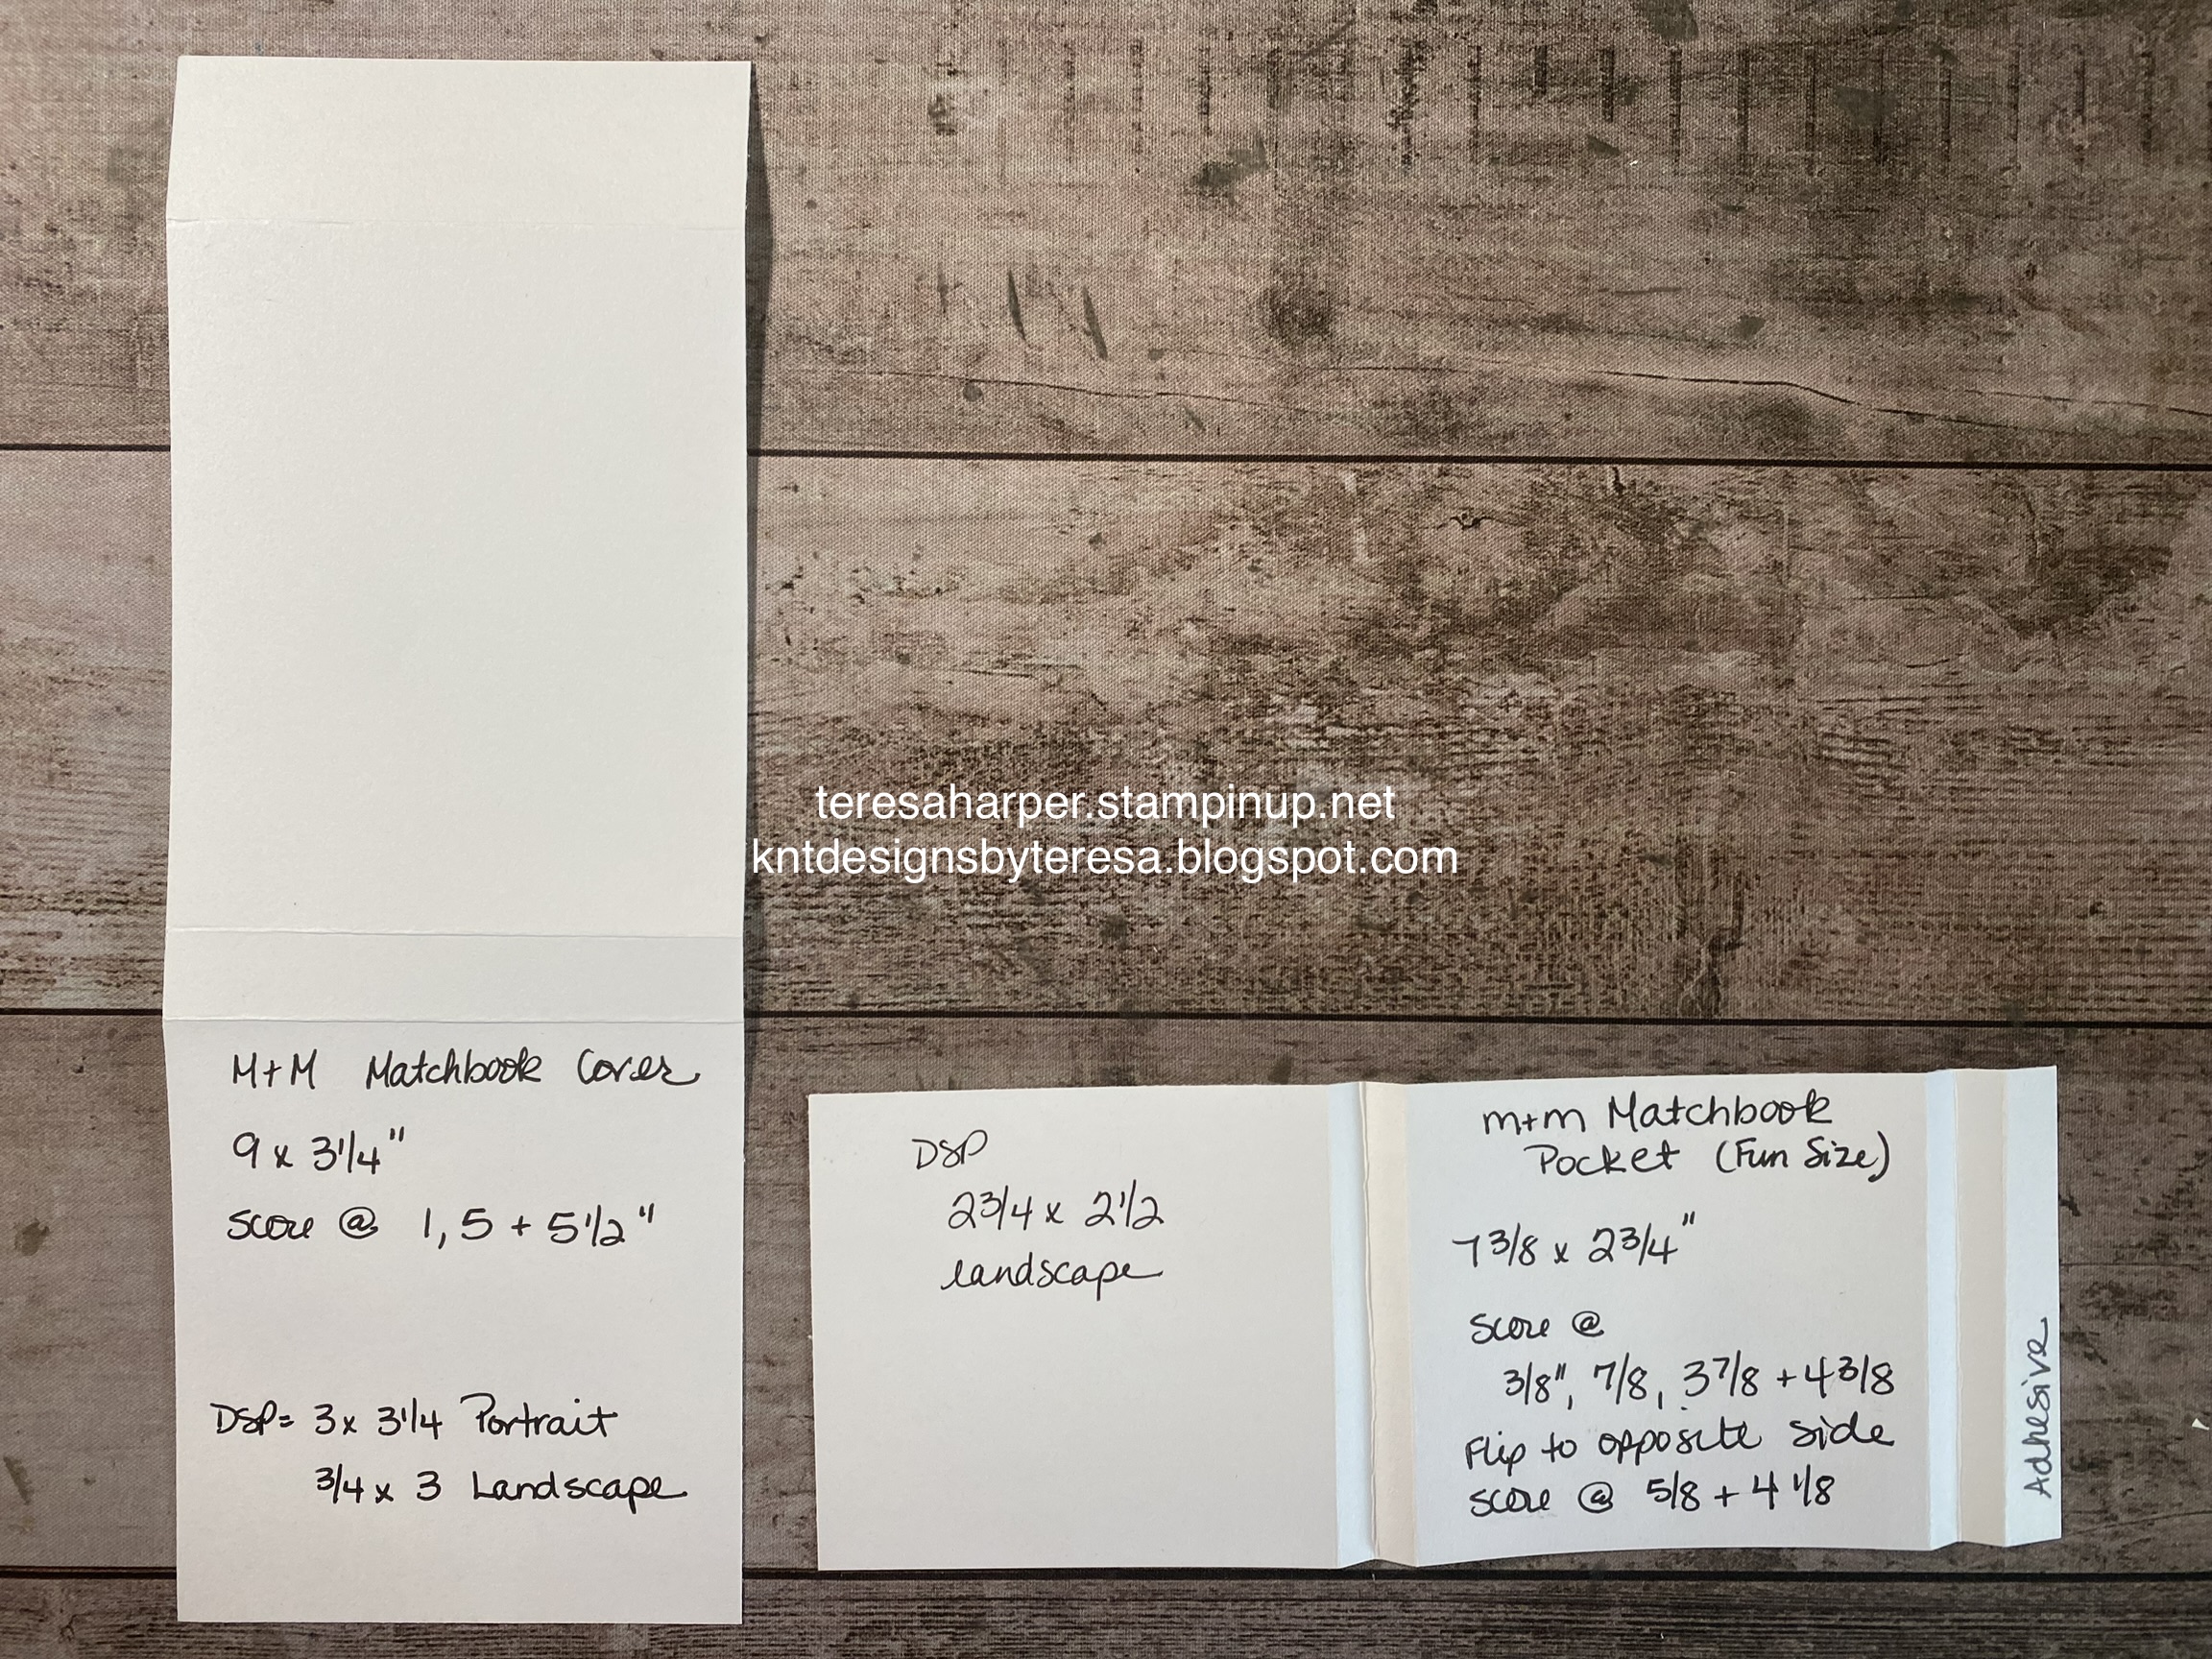 M+M Matchbook Cover
9 x 3 1/4"
Score @ 1, 5 + 5 1/2"
DSP= 3 x 3 1/4 Portrait
3/4 x 3 Landscape
teresaharper.stampinup.net
kntdesignsbyteresa.blogspot.com
DSP
2 3/4 x 2 1/2
landscape
m+m Matchbook
Pocket (Fun Size)
7 3/8 x 2 3/4"
Score @
3/8", 7/8, 3 7/8 + 4 3/8
Flip to opposite side
score @ 5/8 + 4 1/8
Adhesive